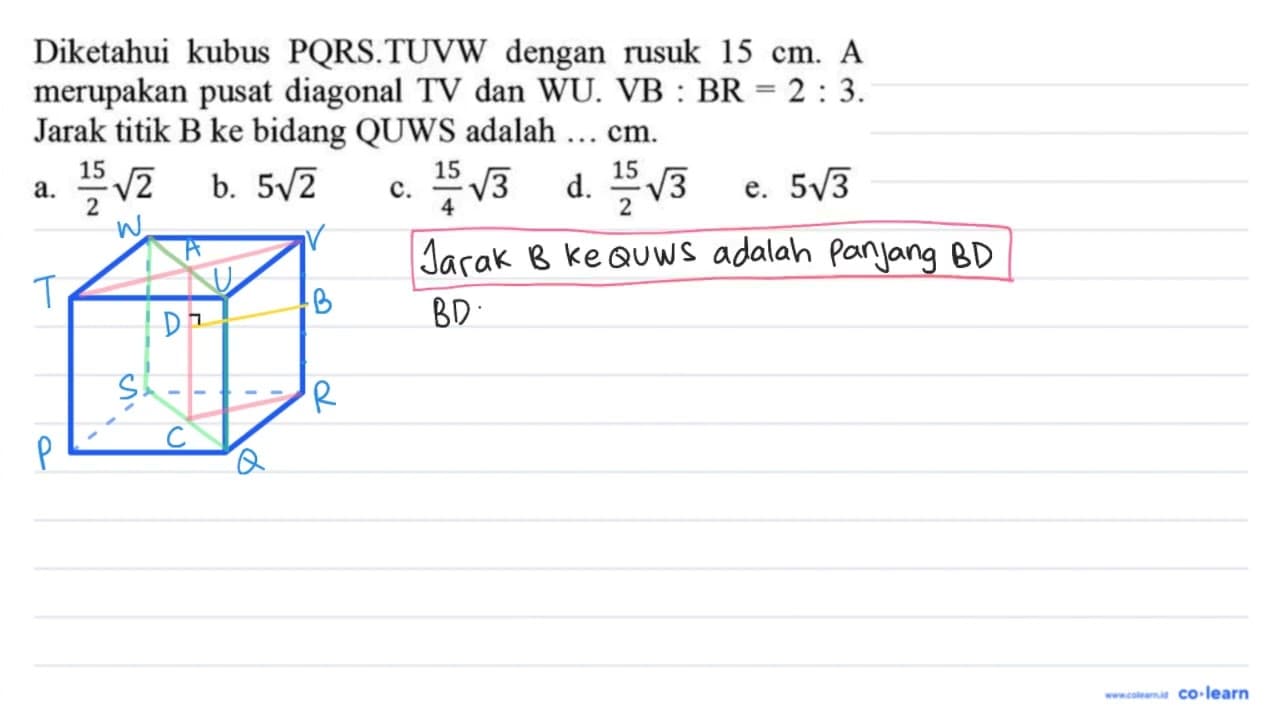 Diketahui kubus PQRS.TUVW dengan rusuk 15 cm. A
merupakan pusat diagonal TV dan WU. VB : BR = 2 : 3.
Jarak titik B ke bidang QUWS adalah ... cm.
a. 15/2 √2 b. 5√2 c. 15/4 √3 d. 15/2 √3 e. 5√3
W
V
A
U
T
B
D
S
R
C
P
Q
Jarak B ke QUWS adalah Panjang BD
BD
www.colearn.id co·learn